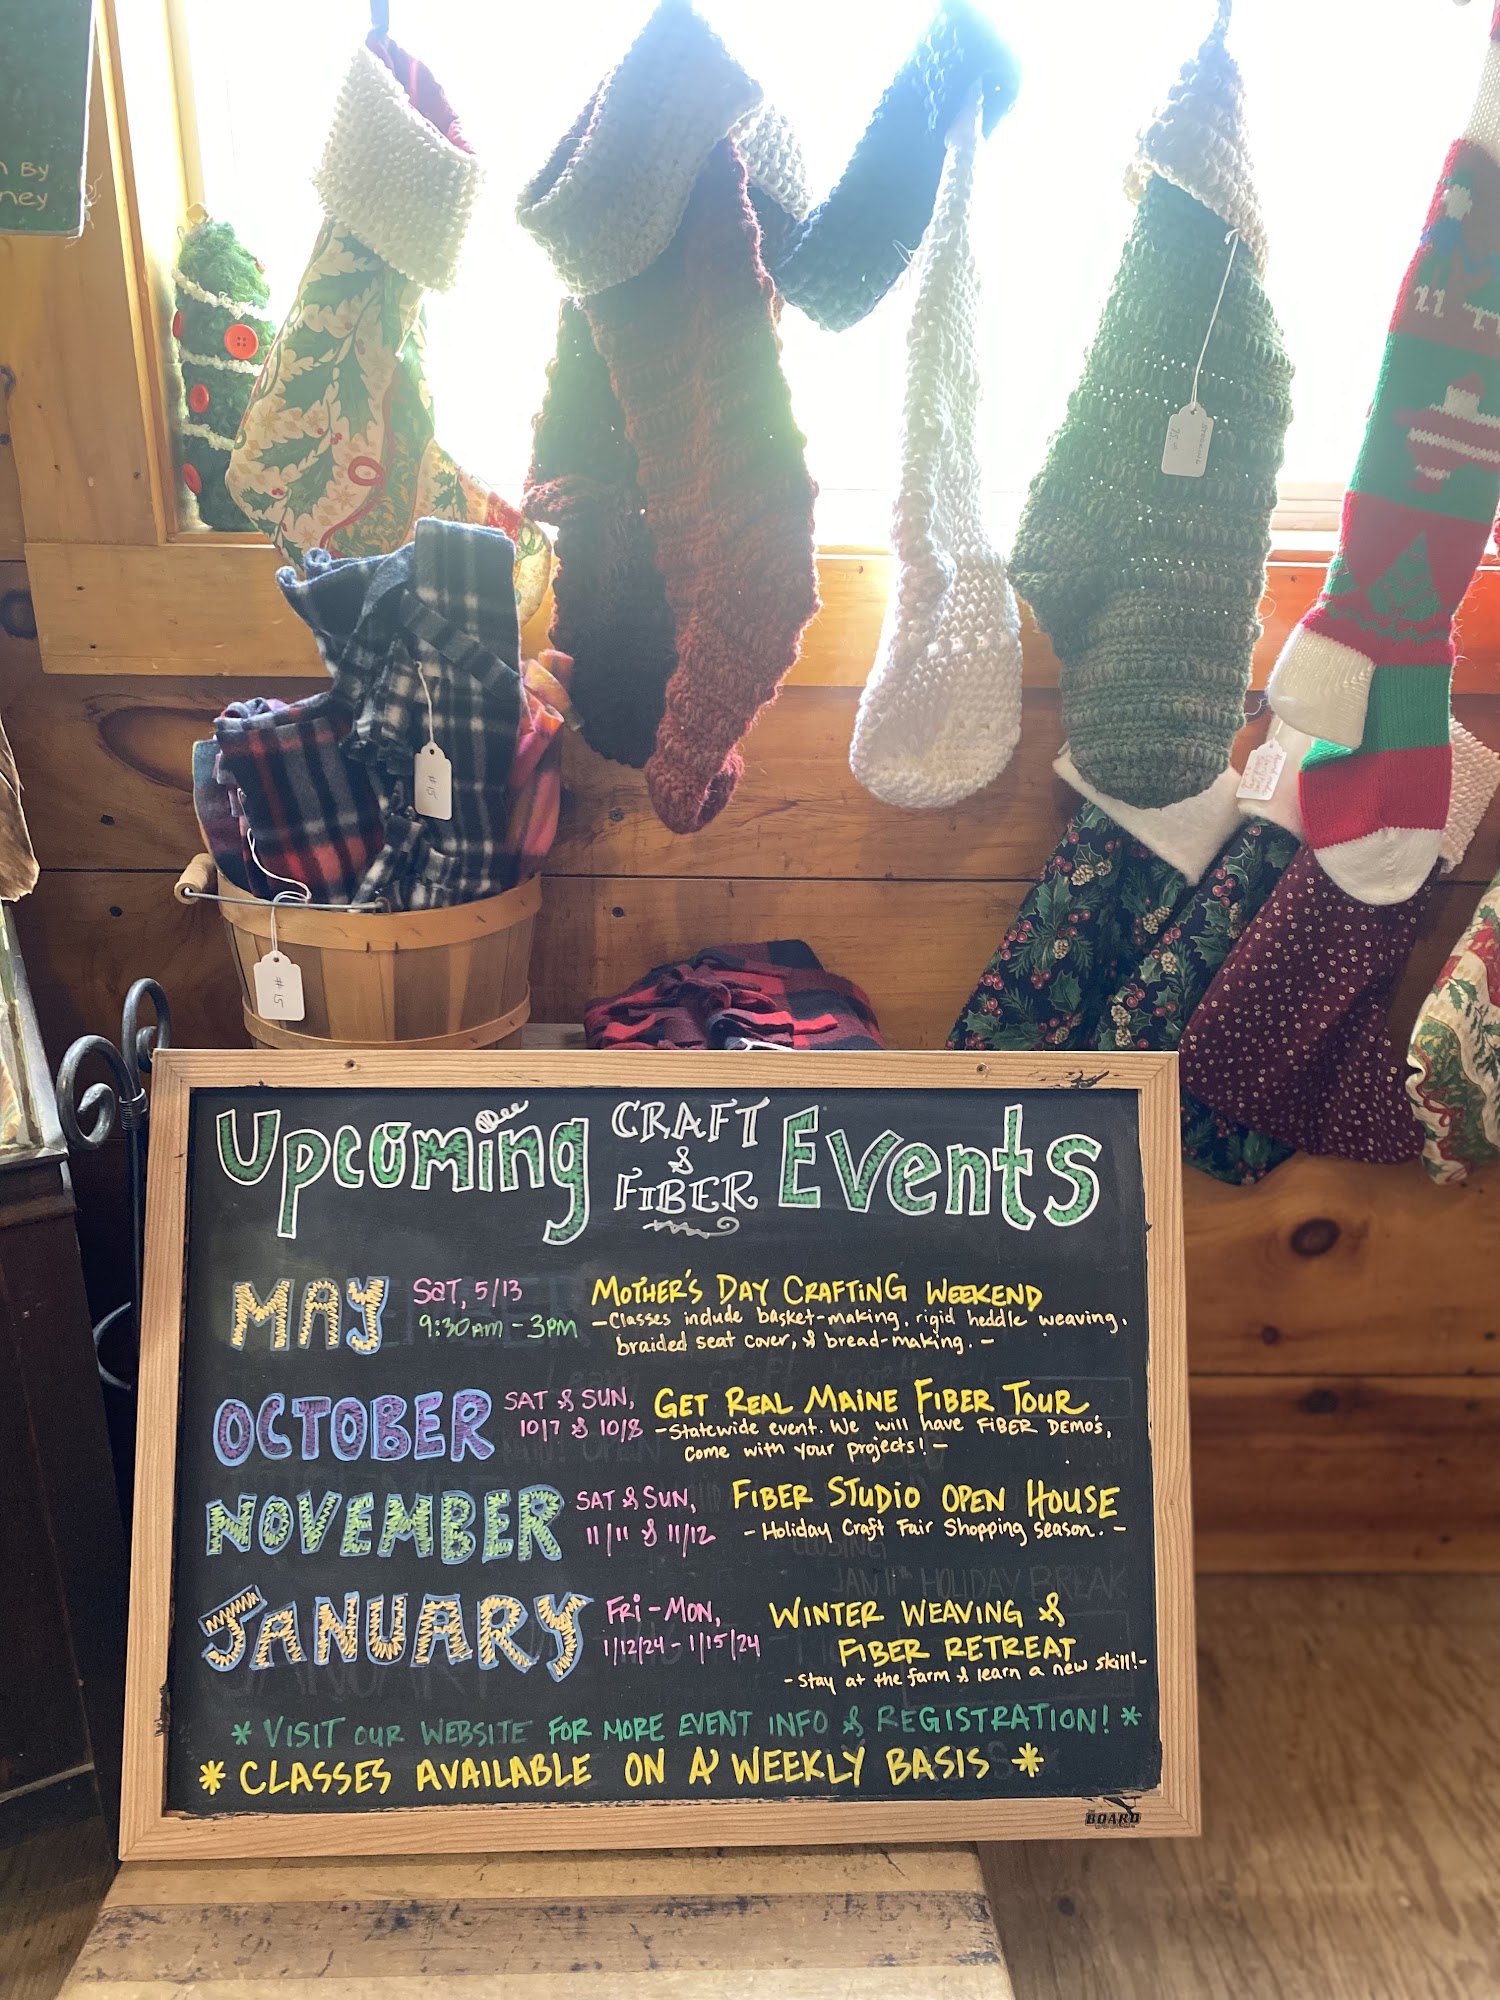 n By
ney
#15
#15
Upcoming CRAFT & FIBER Events
MAY SAT, 5/13 MOTHER'S DAY CRAFTING WEEKEND
9:30AM - 3PM - Classes include basket-making, rigid heddle weaving,
braided seat cover, & bread-making. -
OCTOBER SAT & SUN, GET REAL MAINE FIBER TOUR
10/7 & 10/8 - Statewide event. We will have FIBER DEMO'S,
come with your projects! -
NOVEMBER SAT & SUN, FIBER STUDIO OPEN HOUSE
11/11 & 11/12 - Holiday Craft Fair Shopping season. -
JAN 11th HOLIDAY BREAK
JANUARY FRI - MON, WINTER WEAVING &
1/12/24 - 1/15/24 FIBER RETREAT
- Stay at the farm & learn a new skill! -
* VISIT OUR WEBSITE FOR MORE EVENT INFO & REGISTRATION! *
* CLASSES AVAILABLE ON A WEEKLY BASIS *
BOARD